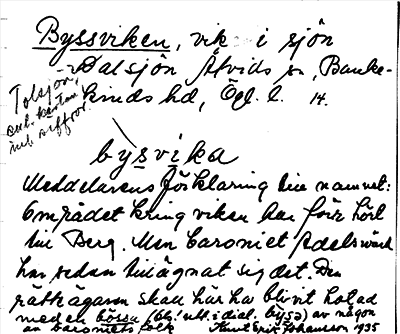 Byssviken, vik i sjön
Dalsjön Åtvids sn, Banke-
kinds hd, Ögl. l. 14.
Tolsjön,
enl. kartan
inb. siffror.
bysvika
Meddelarens förklaring till namnet:
Området kring viken har förr hört
till Berg. Men baroniet Adelswärd
har sedan tillägnat sig det. Den
rättägaren skall här ha blivit hotad
med en bössa (obs! utt. i dial. bysa) av någon
av baroniets folk Knut Erik Johansson 1935